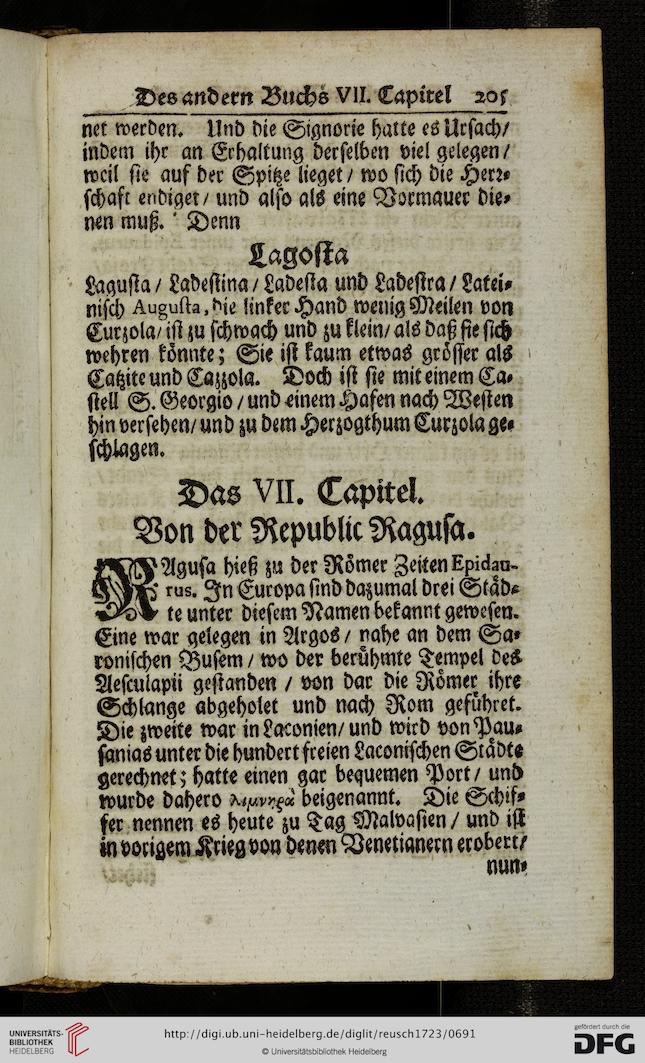 Des andern Buchs VII. Capitel 205
net werden. Und die Signorie hatte es Ursach/
indem ihr an Erhaltung derselben viel gelegen/
weil sie auf der Spitze lieget/ wo sich die Herr-
schaft endiget/ und also als eine Vormauer die-
nen muß. Denn
Lagosta
Lagusta/ Ladestina/ Ladesta und Ladestra/ Latei-
nisch Augusta, die linker Hand wenig Meilen von
Curzola/ ist zu schwach und zu klein/ als daß sie sich
wehren könnte; Sie ist kaum etwas grösser als
Catzite und Cazzola. Doch ist sie mit einem Ca-
stell S. Georgio/ und einem Hafen nach Westen
hin versehen/ und zu dem Herzogthum Curzola ge-
schlagen.
Das VII. Capitel.
Von der Republic Ragusa.
RAgusa hieß zu der Römer Zeiten Epidau-
rus. In Europa sind dazumal drei Städ-
te unter diesem Namen bekannt gewesen.
Eine war gelegen in Argos/ nahe an dem Sa-
ronischen Busem/ wo der berühmte Tempel des
Aesculapii gestanden/ von dar die Römer ihre
Schlange abgeholet und nach Rom geführet.
Die zweite war in Laconien/ und wird von Pau-
sanias unter die hundert freien Laconischen Städte
gerechnet; hatte einen gar bequemen Port/ und
wurde dahero λιμνηρὰ beigenannt. Die Schif-
fer nennen es heute zu Tag Malvasien/ und ist
in vorigem Krieg von denen Venetianern erobert/
nun-
UNIVERSITÄTS-
BIBLIOTHEK
HEIDELBERG
http://digi.ub.uni-heidelberg.de/diglit/reusch1723/0691
© Universitätsbibliothek Heidelberg
gefördert durch die
DFG